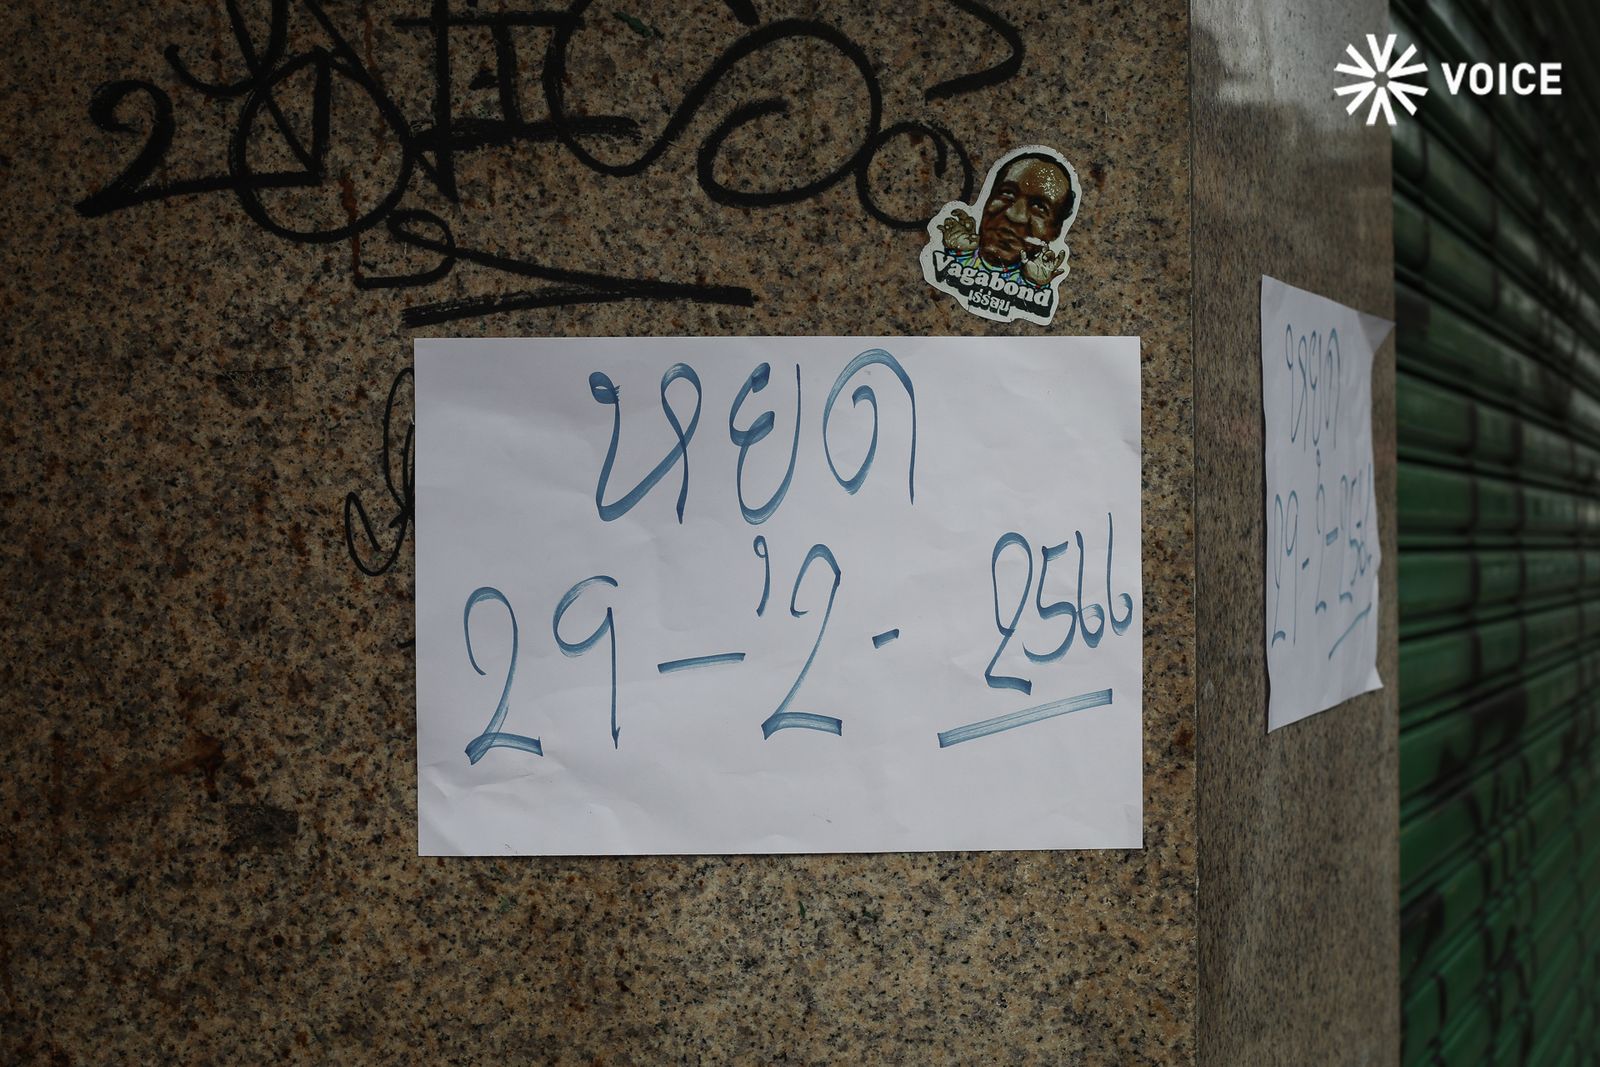 VOICE
Vagabond
เร่ร่อน
หยุด
29 - 2 - 2566
หยุด
29 - 2 - 2566